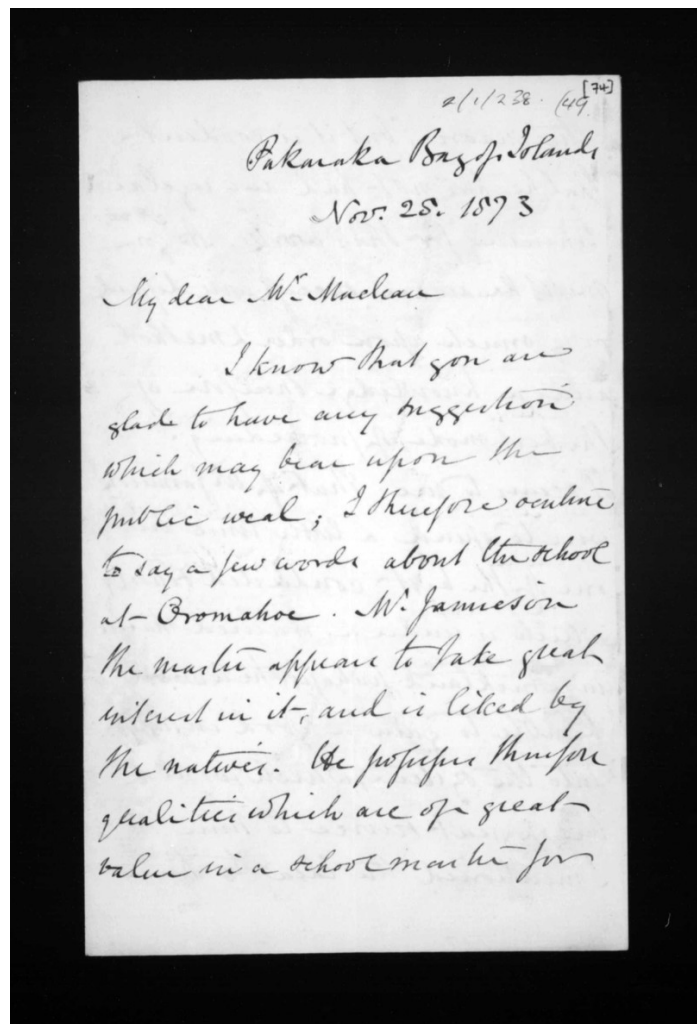 [74]
2/1/238. (49
Pakaraka Bay of Islands
Nov. 25. 1873
My dear Mr. Maclean
I know that you are
glad to have any suggestion
which may bear upon the
public weal; I therefore venture
to say a few words about the school
at Oromahoe. Mr. Jamieson
the master appears to take great
interest in it, and is liked by
the natives. He possesses therefore
qualities which are of great
value in a school master for